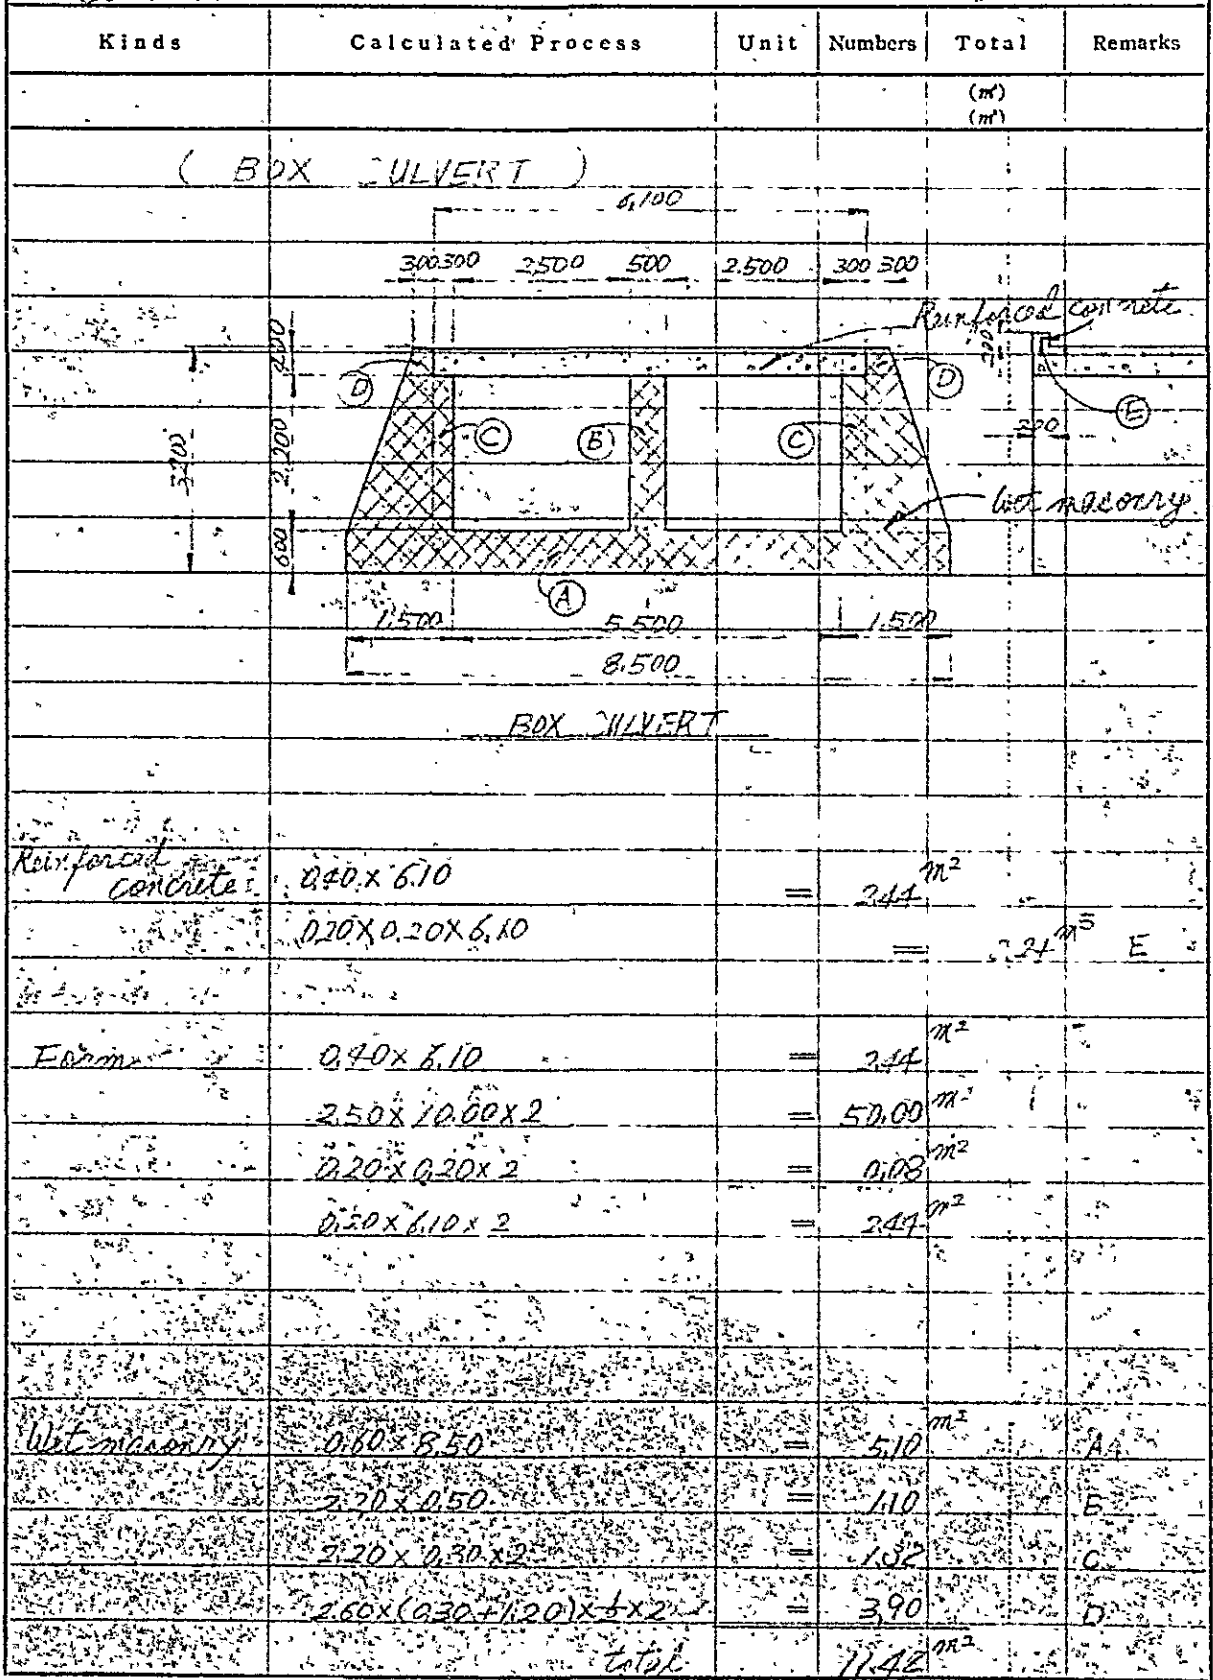 Kinds Calculated Process Unit Numbers Total Remarks
(m²)
(m³)
( BOX CULVERT )
6,100
300 300 2,500 500 2.500 300 300
Reinforced concrete
200
D D
E
C B C
200
3,200
2,200
600
Wet masonry
A
1,500 5.500 1.500
8.500
BOX CULVERT
Reinforced
concrete 0.40 x 6.10 = 2.44 m²
0.20 x 0.20 x 6.10 = 0.24 m³ E
Form 0.40 x 6.10 = 2.44 m²
2.50 x 10.00 x 2 = 50.00 m²
0.20 x 0.20 x 2 = 0.08 m²
0.20 x 6.10 x 2 = 2.44 m²
Wet masonry 0.60 x 8.50 = 5.10 m² A
2.20 x 0.50 = 1.10 B
2.20 x 0.30 x 2 = 1.32 C
2.60 x (0.30 + 1.20) x ½ x 2 = 3.90 D
total 11.42 m²